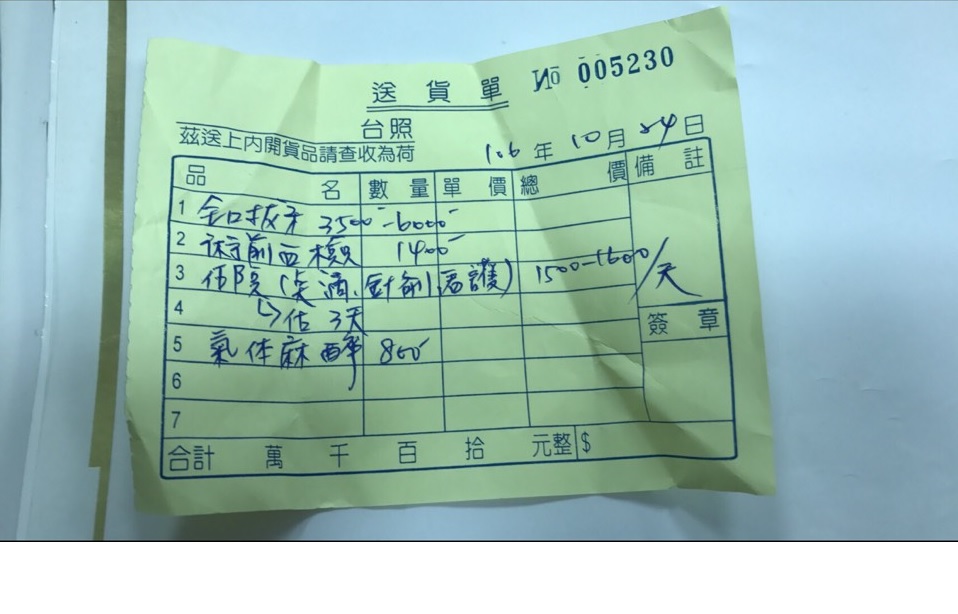 送貨單 No 005230
台照
茲送上內開貨品請查收為荷 106年10月24日
品名 數量 單價 總價 備註
1 全口拔牙 3500-6000
2 術前血檢 1400
3 住院(點滴、針劑、看護) 1500-1600/天
4 ↳估 3天
簽章
5 氣体麻醉 800
6
7
合計 萬 千 百 拾 元整 $